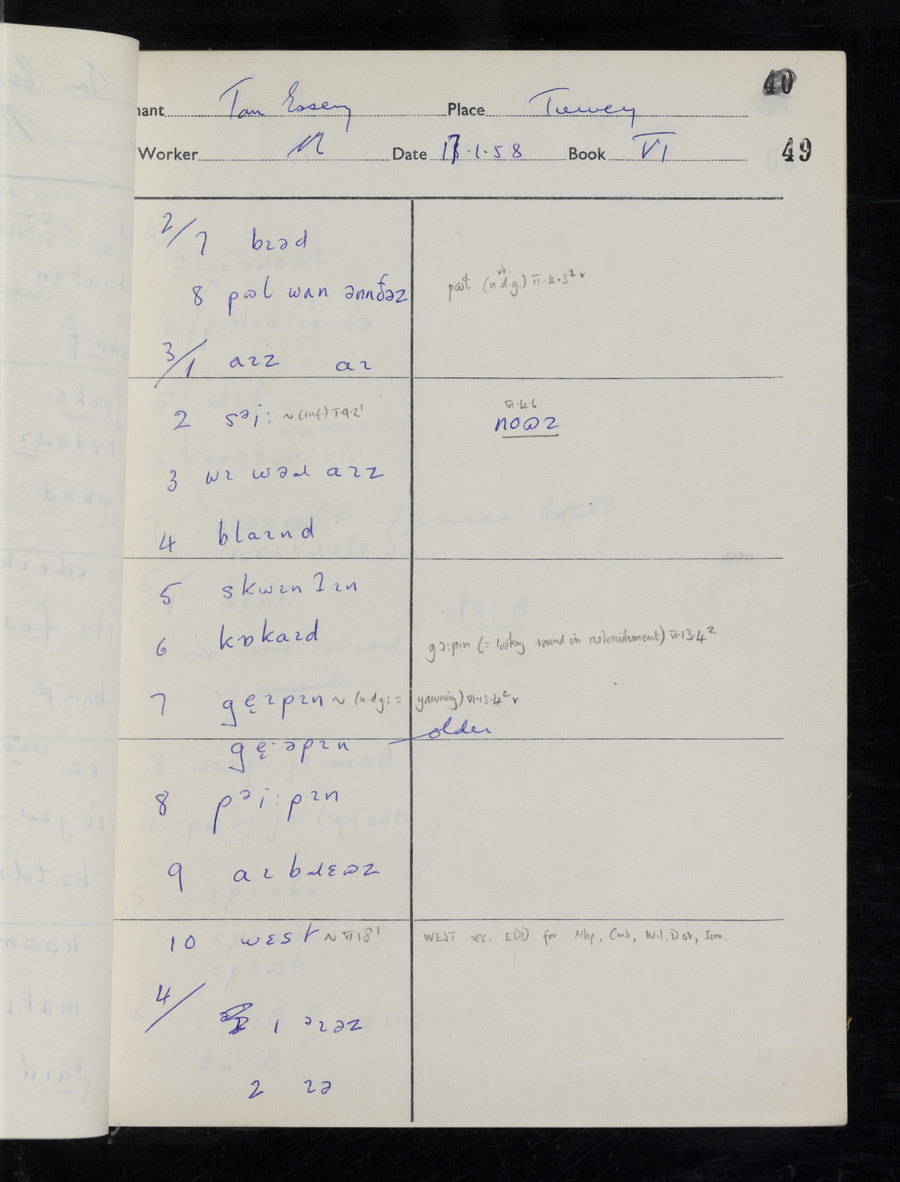 40
Tom Essery Place Towey
Worker Date 17.1.58 Book VI 49
2/7 bɹəd
8 pɷl wʌn ənnðəz
3/1 aɪz aɪ
2 səi: ~ (inf.) V.9.2¹
VI.4.6
noɷz
3 wɪ wəɹ aɪz
4 blaɪnd
5 skwɪnʔɪn
6 kɒkaɪd
gɔ:pɪn (= looking round in astonishment) VI.13.4²
7 gęɪpɪn ~ (n.d.g; = yawning) VI.13.4² v
older
gę·əpɪn
8 pəi:pɪn
9 aɪbɹɛɷz
10 wɛst ~ VI.1.8¹ WEST rec. EDD for Nhp, Cmb, Wil, Dor, Som.
4/ 1 əɪəz
2 ɪə